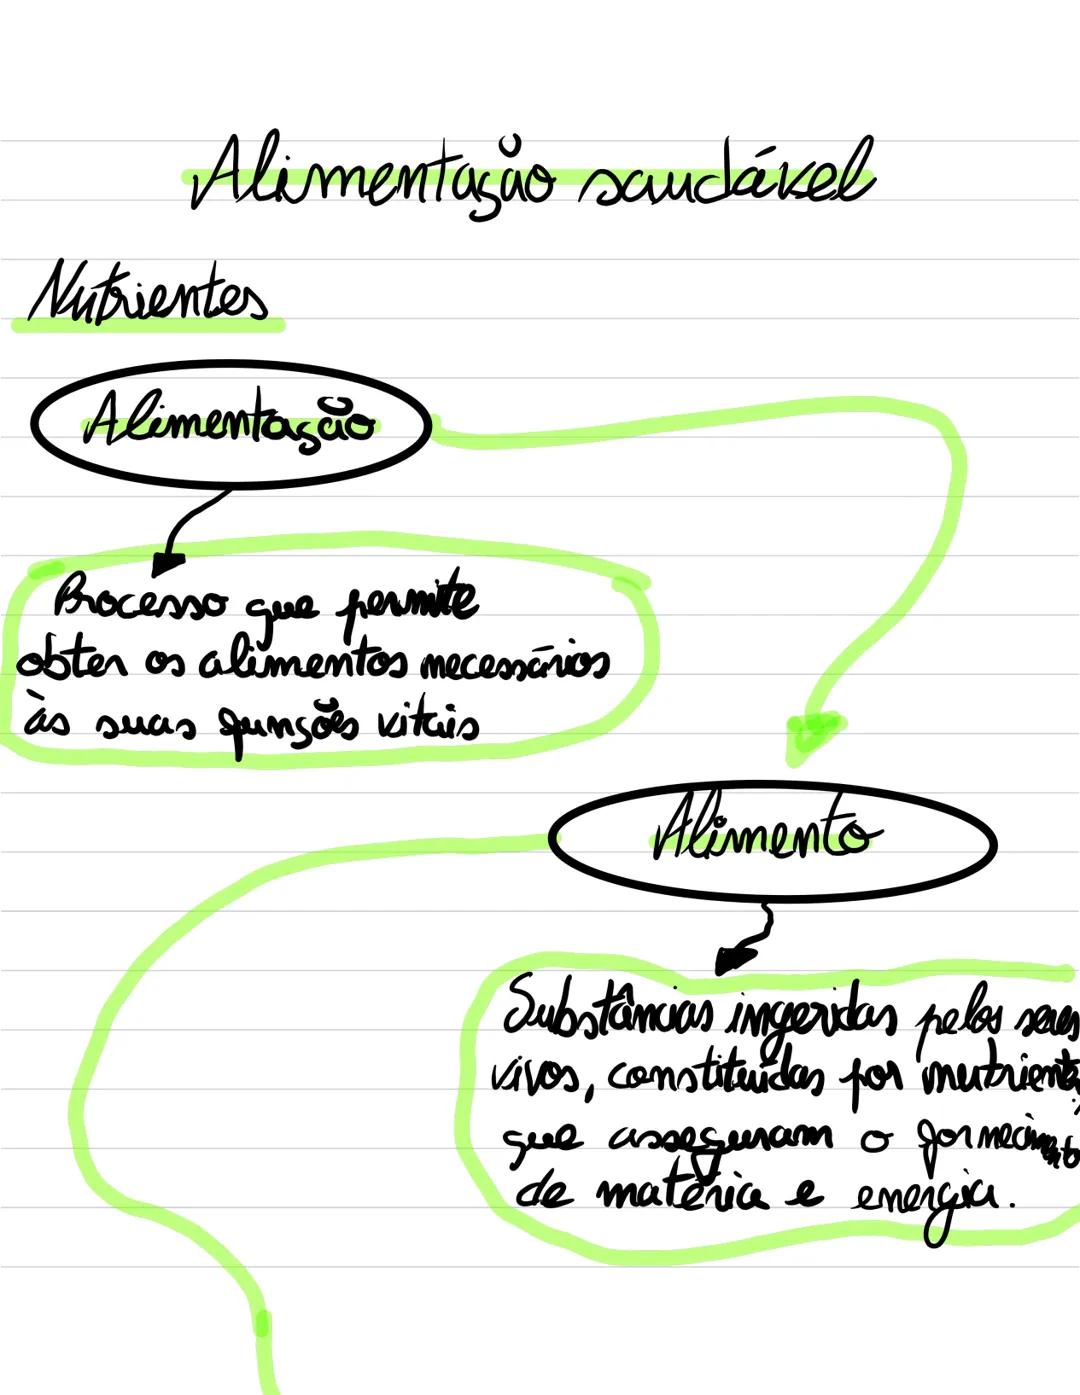 Alimentação saudável
Nutrientes
Alimentação
Processo que permite
obter os alimentos necessários
às suas funções vitais
Alimento
Substâncias ingeridas pelos seres
vivos, constituídas por nutrientes
que asseguram o fornecimento
de matéria e energia.